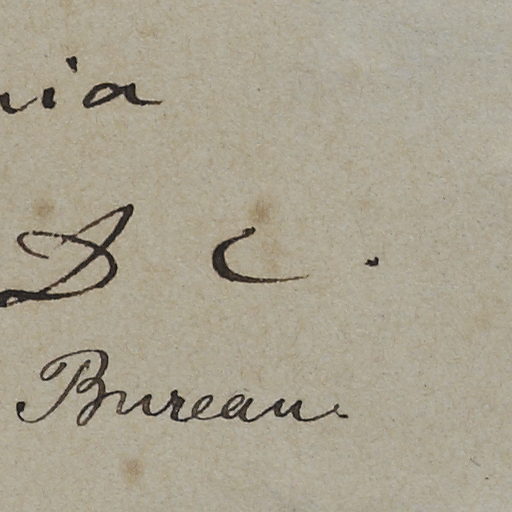 nia
D C.
Bureau.